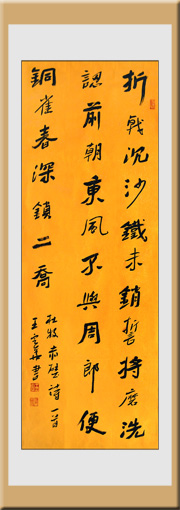 折戟沉沙鐵未銷將磨洗
認前朝東風不與周郎便
銅雀春深鎖二喬
杜牧赤壁詩一首
王書